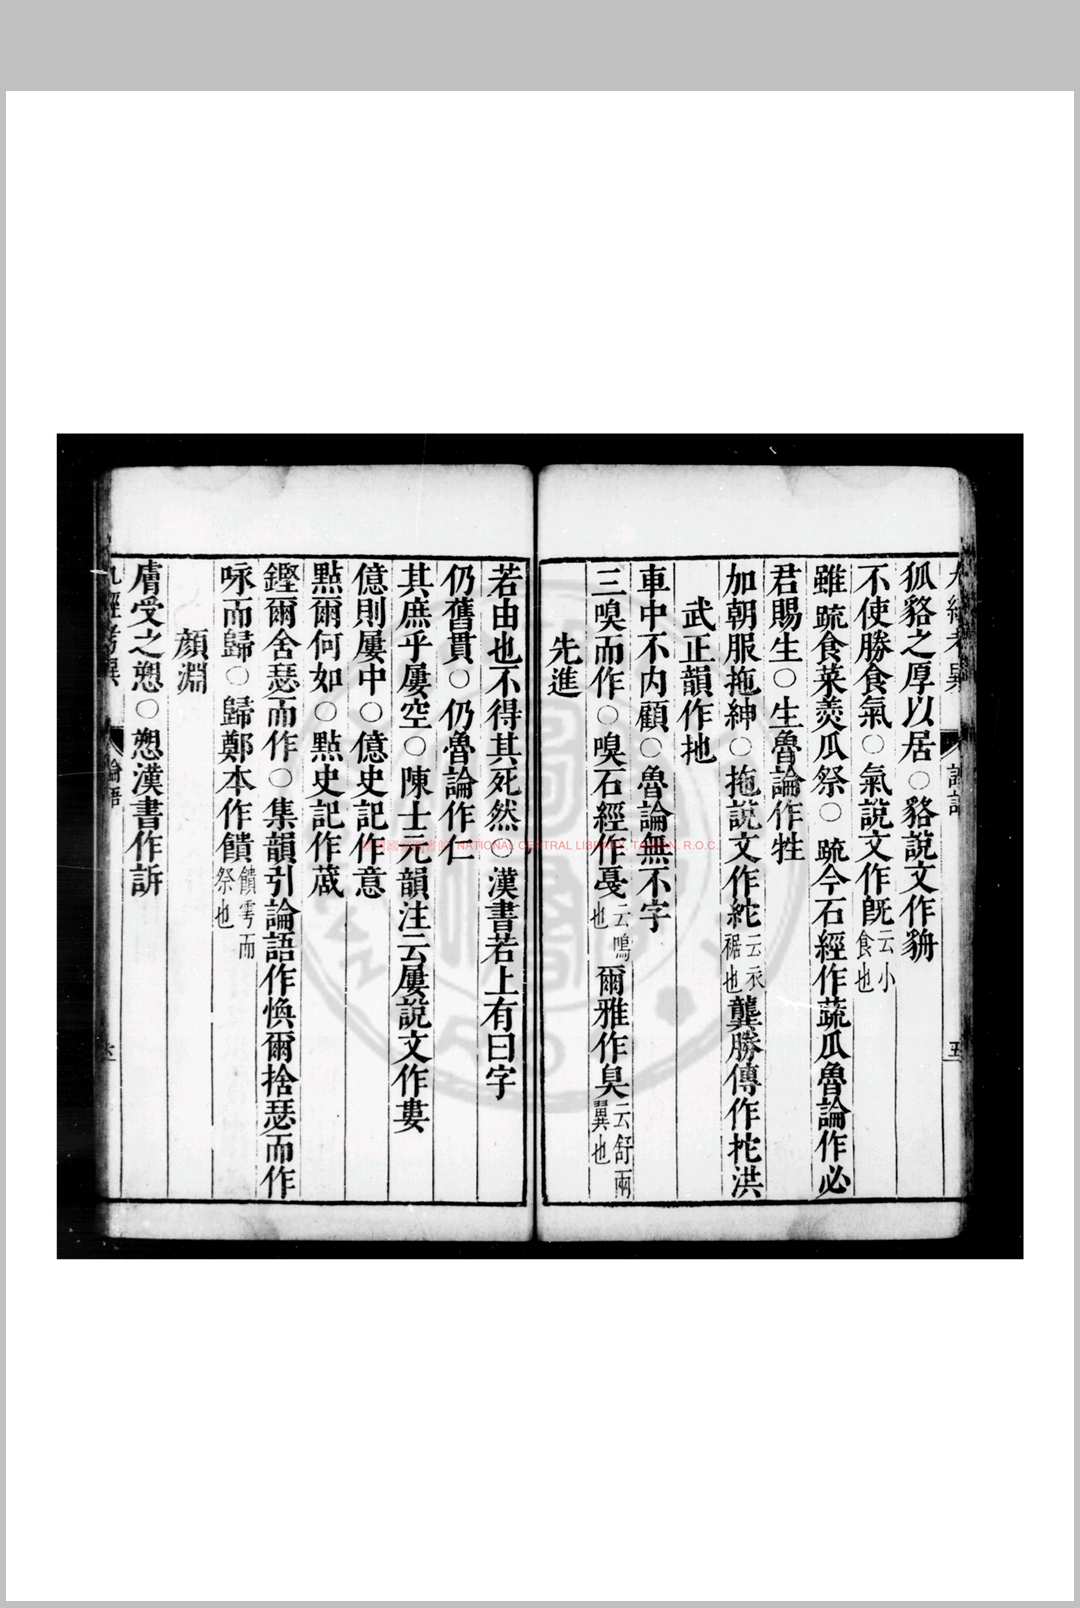 狐貉之厚以居○貉說文作貈
不使勝食氣○氣說文作旣云小食也
雖䟽食菜羮瓜祭○䟽今石經作蔬瓜魯論作必
君賜生○生魯論作牲
加朝服拖紳○拖說文作袉云衣裾也龔勝傳作拕洪
武正韻作扡
車中不内顧○魯論無不字
三嗅而作○嗅石經作戞云鳴也爾雅作臭云舒兩翼也
先進
若由也不得其死然○漢書若上有曰字
仍舊貫○仍魯論作仁
其庶乎屢空○陳士元韻注云屢說文作婁
億則屢中○億史記作意
點爾何如○點史記作蒧
鏗爾舍瑟而作○集韻引論語作㧶爾捨瑟而作
咏而歸○歸鄭本作饋饋雩而祭也
顏淵
膚受之愬○愬漢書作訴
九經考異
論語
五
NATIONAL CENTRAL LIBRARY, TAIWAN, R.O.C.